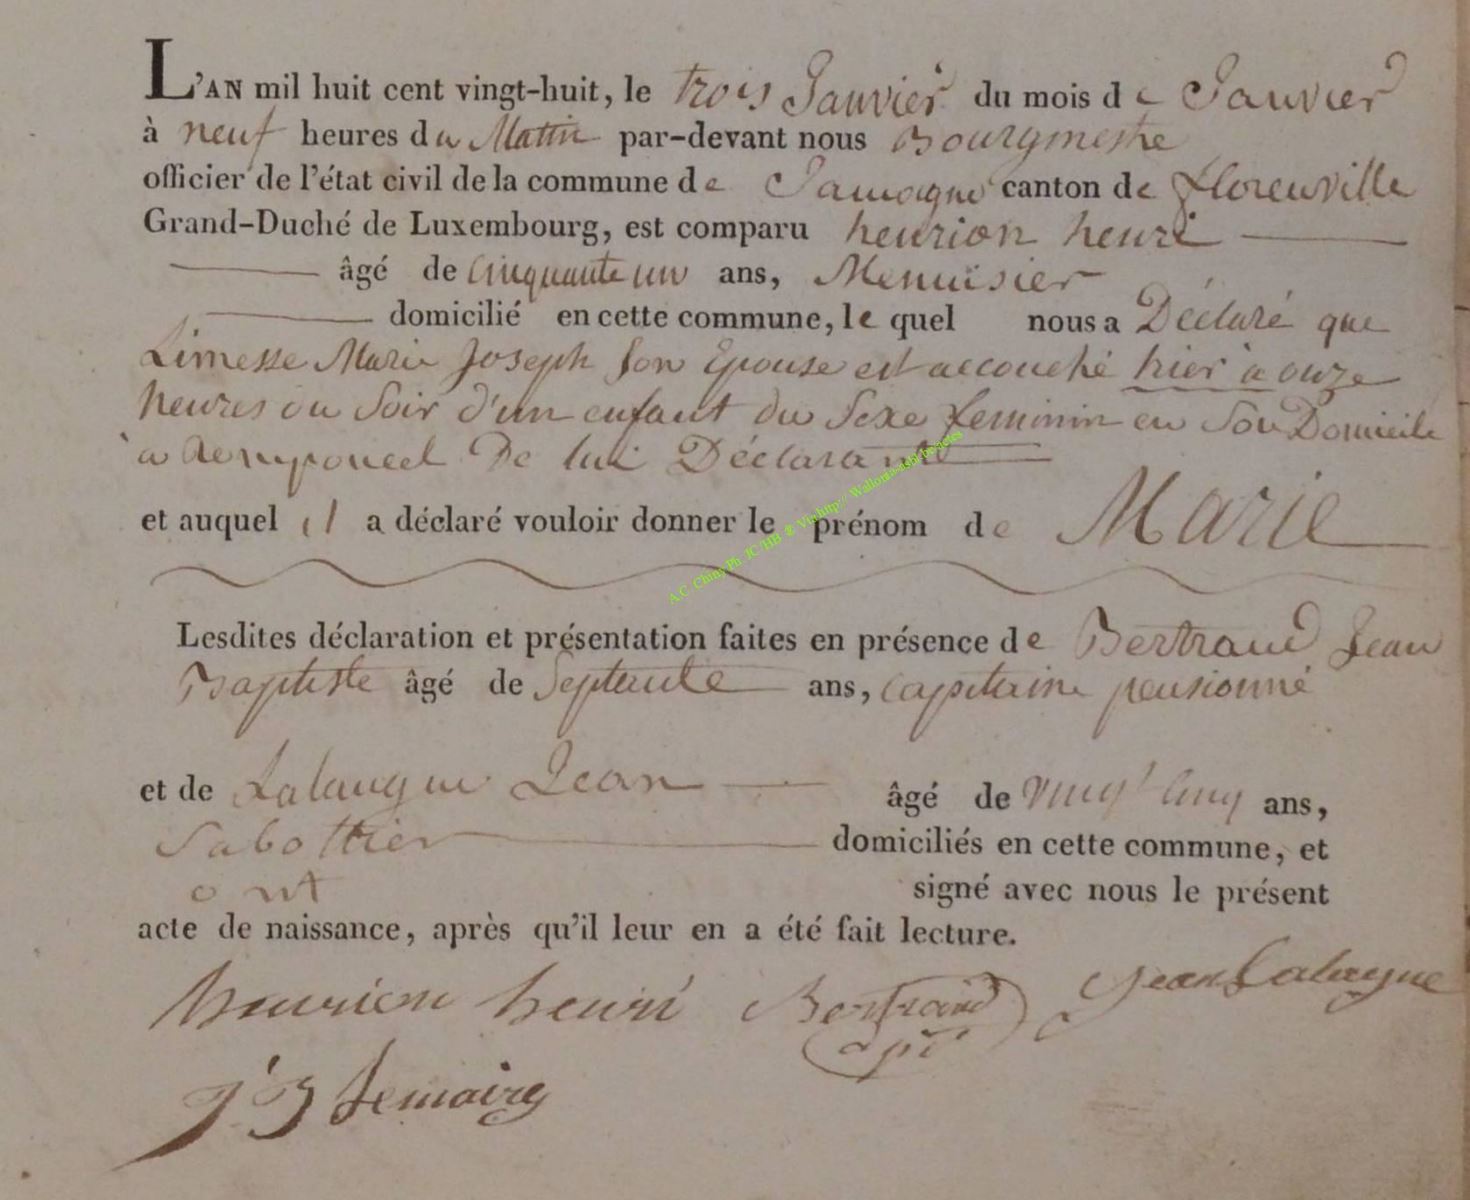 L'AN mil huit cent vingt-huit, le trois Janvier du mois de Janvier
à neuf heures du Mattin par-devant nous Bourgmestre
officier de l'état civil de la commune de Jamoigne canton de Florenville
Grand-Duché de Luxembourg, est comparu henrion henri
âgé de Cinquante un ans, Menuisier
domicilié en cette commune, le quel nous a Déclaré que
Limesse Marie Joseph Son Epouse est accouché hier à onze
heures du Soir d'un enfant du Sexe feminin en Son Domicile
à De lui Déclarant
et auquel il a déclaré vouloir donner le prénom de Marie
A.C. Chiny Ph. JC HB & Via http://
Lesdites déclaration et présentation faites en présence de Bertrand Jean
Baptiste âgé de Septante ans, Capitaine pensionné
et de Lalangue Jean âgé de vingt Cinq ans,
Sabottier domiciliés en cette commune, et
ont signé avec nous le présent
acte de naissance, après qu'il leur en a été fait lecture.
henrion henri Bertrand Jean Lalangue
J B Lemaire